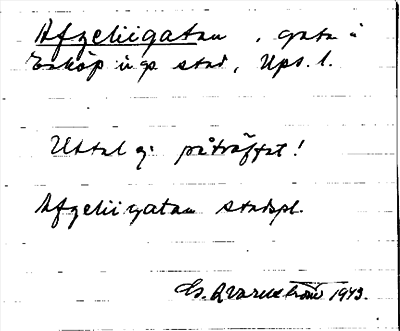 Afzeliigatan, gata i
Enköpings stad, Ups. l.
Uttal ej påträffat!
Afzeliigatan stadspl.
Es. Qvarnström 1943.